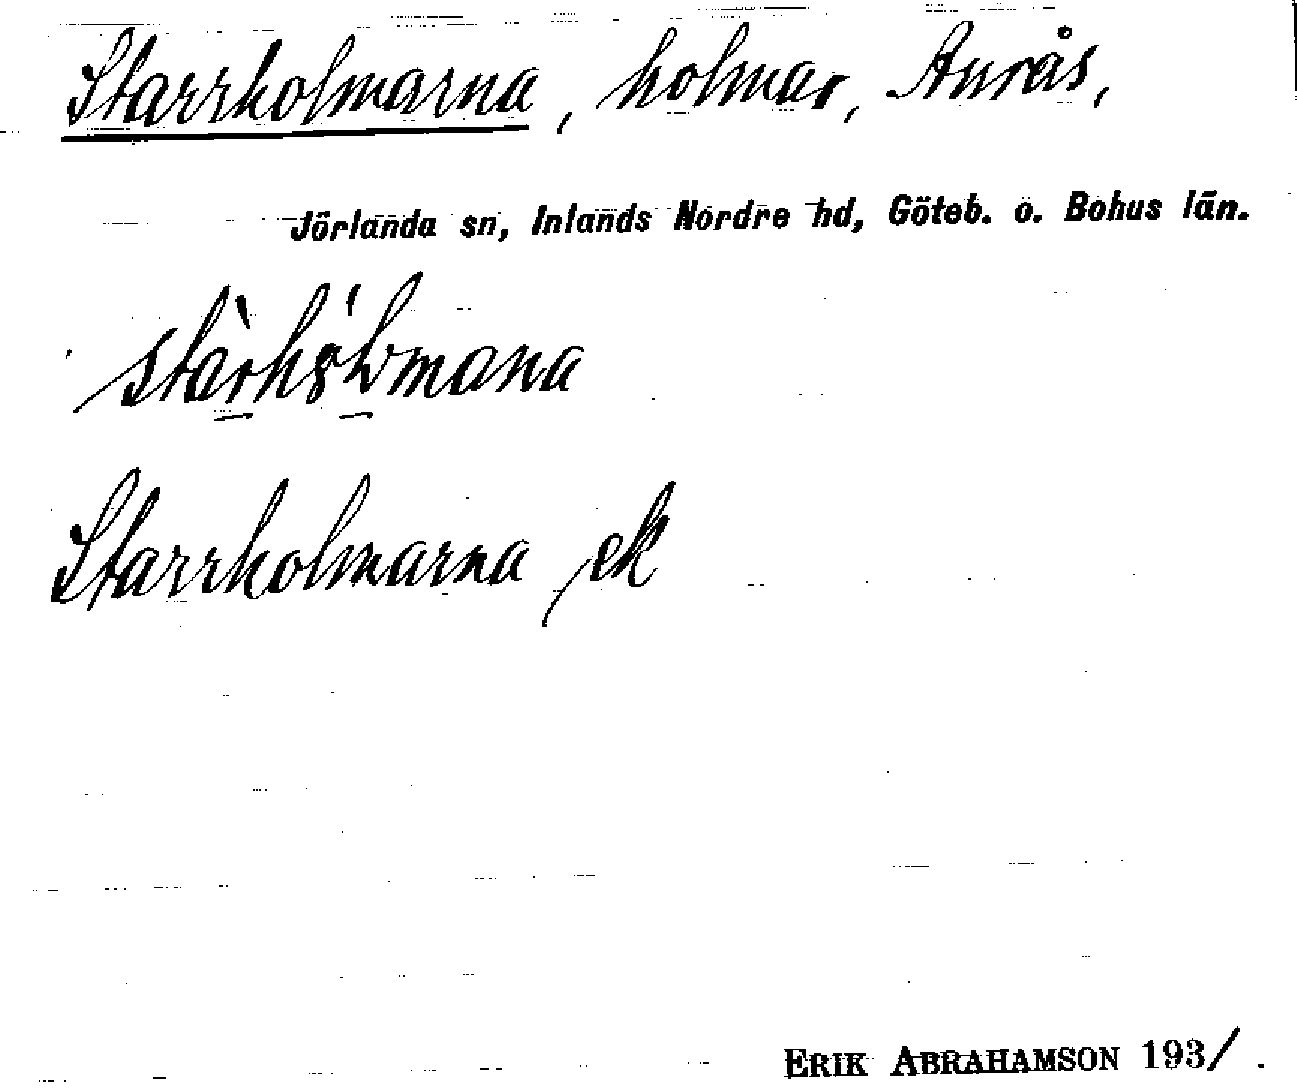 Starrholmarna, holmar, Anrås,
Jörlanda sn, Inlands Nordre hd, Göteb. o. Bohus län.
Starrholmarna, ek
ERIK ABRAHAMSON 193/.